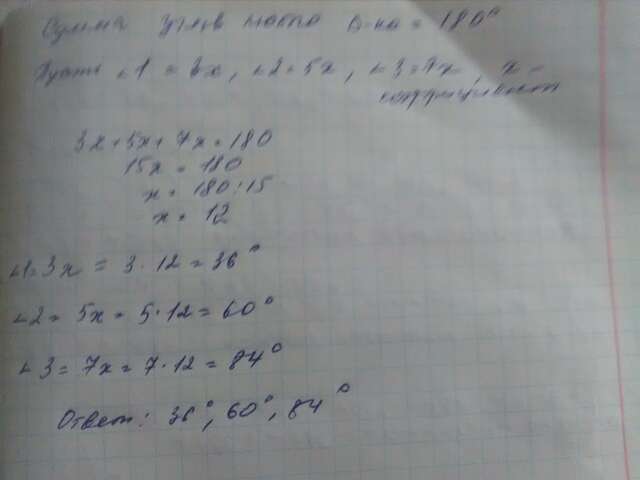 Сумма углов любого Δ-ка = 180°
Пусть ∠1 = 3x, ∠2 = 5x, ∠3 = 7x, x –
коэффициент
3x + 5x + 7x = 180
15x = 180
x = 180 : 15
x = 12
∠1 = 3x = 3 · 12 = 36°
∠2 = 5x = 5 · 12 = 60°
∠3 = 7x = 7 · 12 = 84°
Ответ: 36°, 60°, 84°